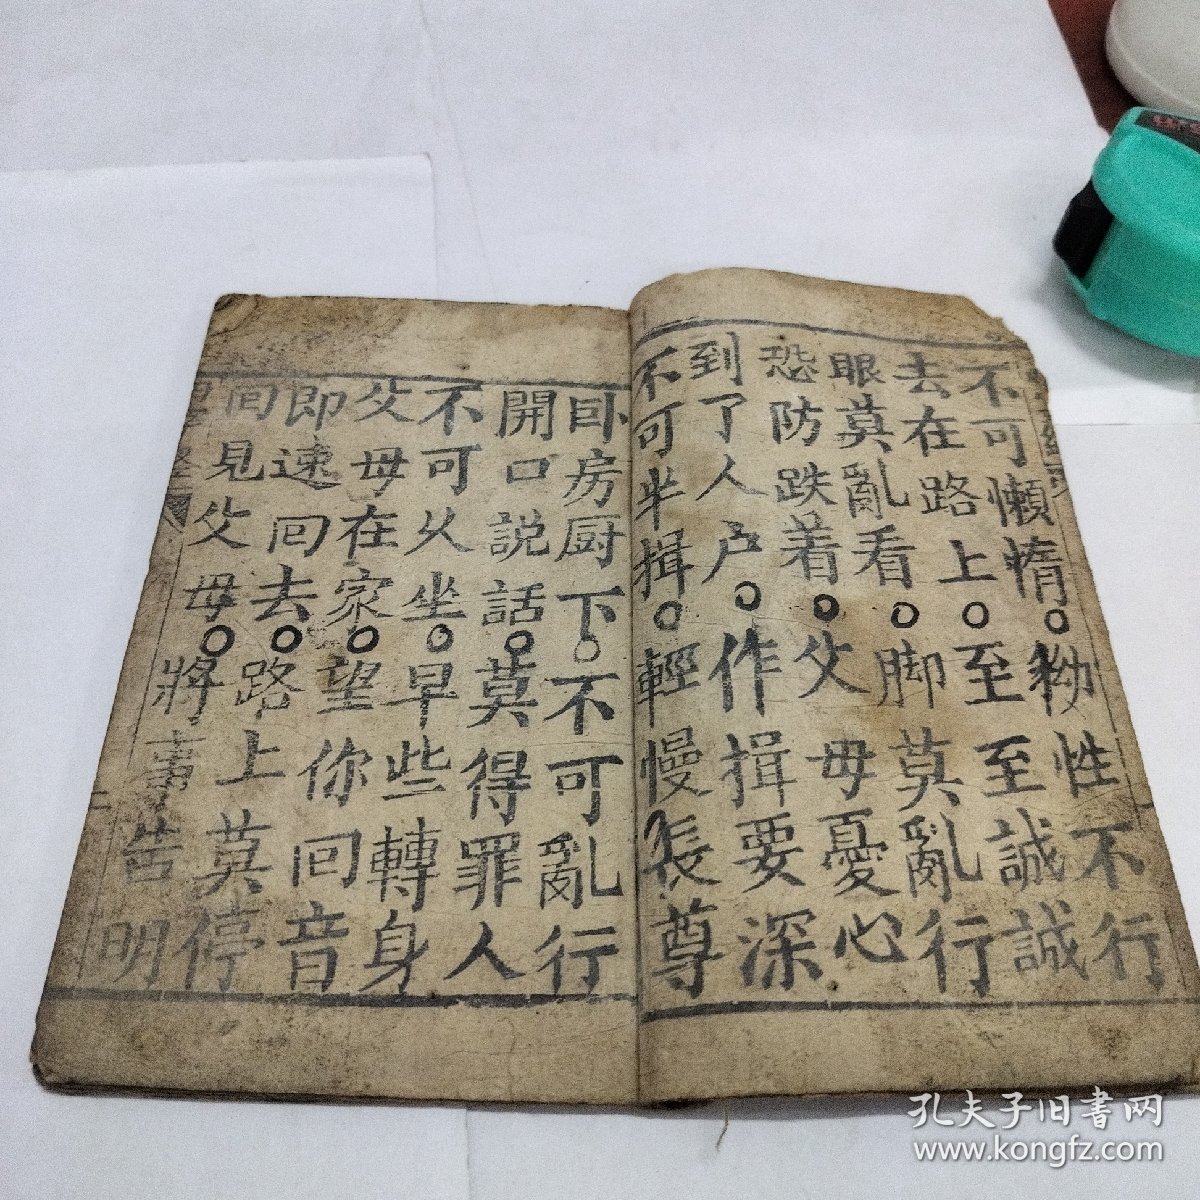 不可懶惰○拗性不行
去在路上○至至誠誠
眼莫亂看○脚莫亂行
恐防跌着○父母憂心
到了人户○作揖要深
不可半揖○輕慢長尊
卧房厨下○不可亂行
開口説話○莫得罪人
不可久坐○早些轉身
父母在家○望你回音
即速回去○路上莫停
回見父母○將事告明
孔夫子旧書网
www.kongfz.com